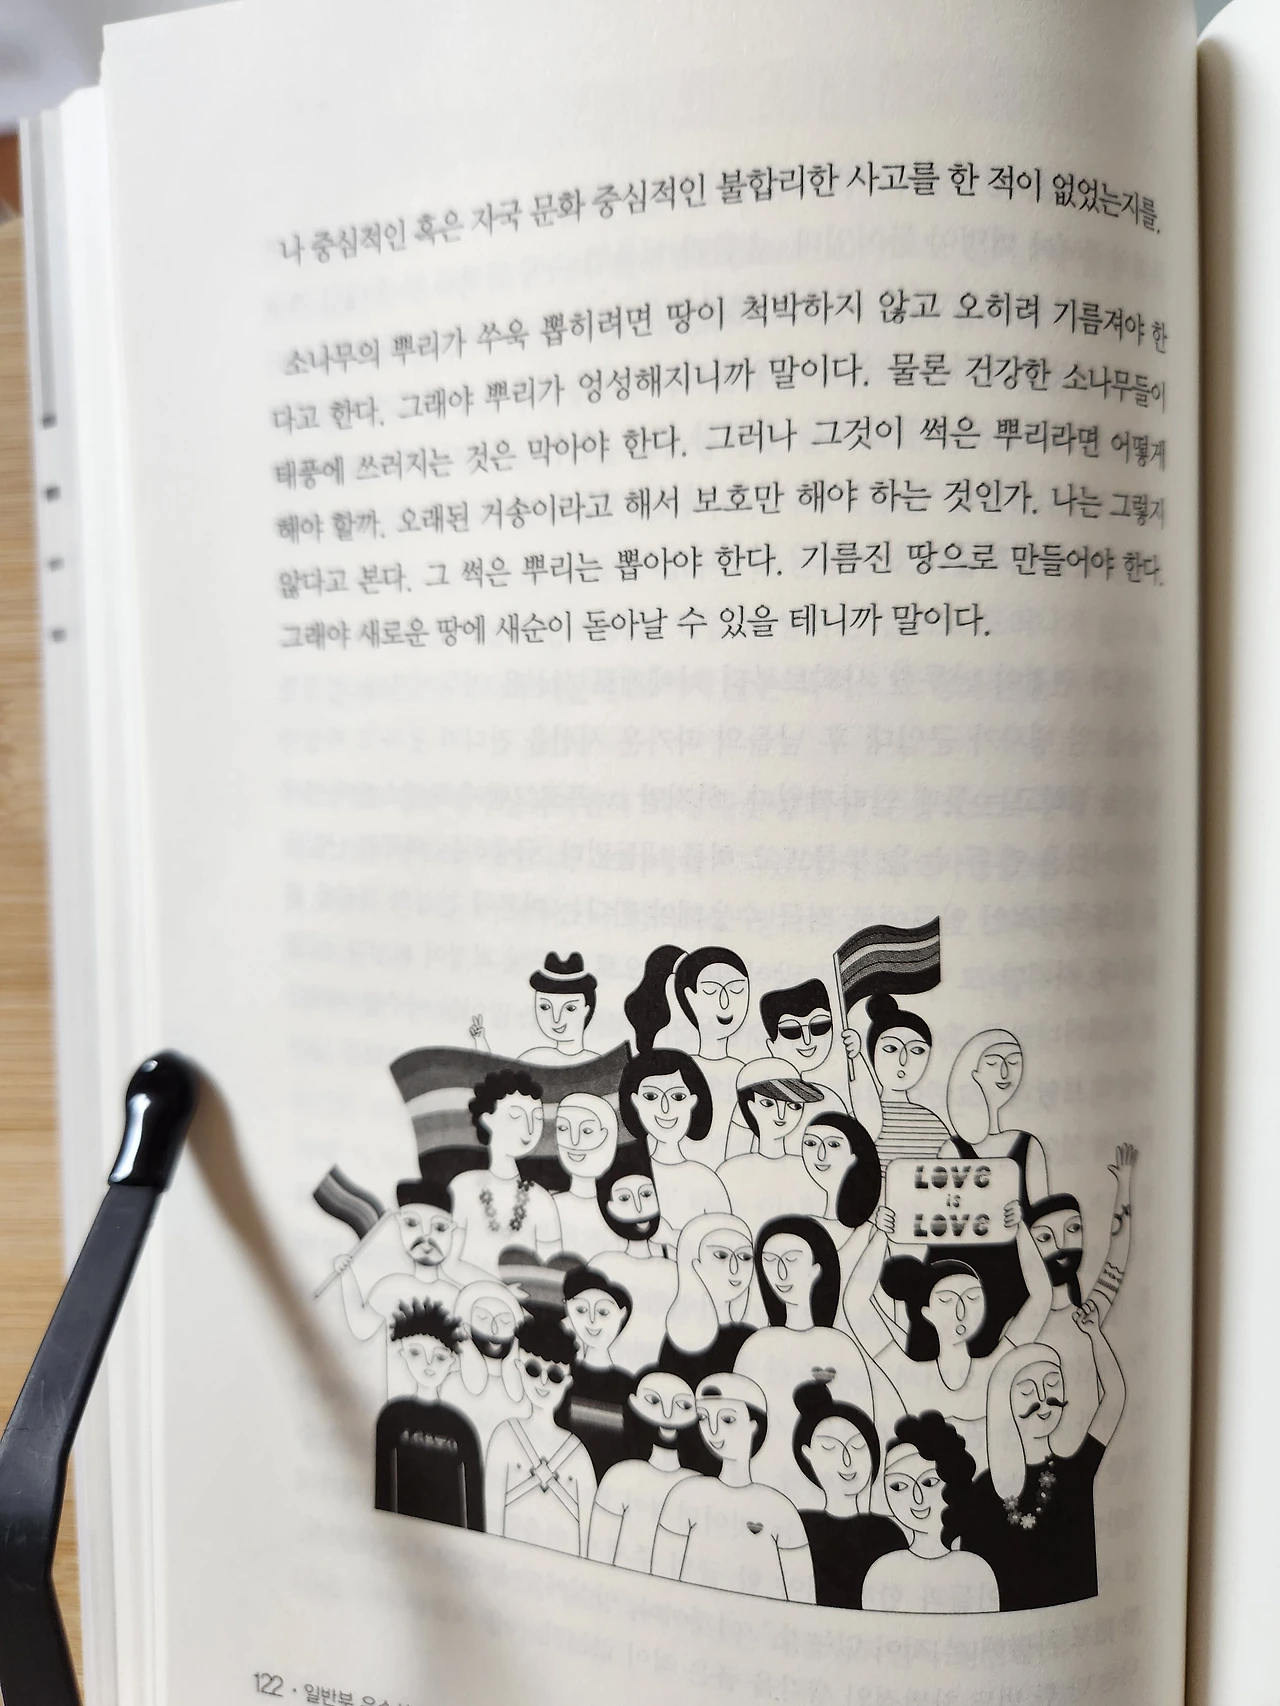 나 중심적인 혹은 자국 문화 중심적인 불합리한 사고를 한 적이 없었는지를.
소나무의 뿌리가 쑤욱 뽑히려면 땅이 척박하지 않고 오히려 기름져야 한
다고 한다. 그래야 뿌리가 엉성해지니까 말이다. 물론 건강한 소나무들이
태풍에 쓰러지는 것은 막아야 한다. 그러나 그것이 썩은 뿌리라면 어떻게
해야 할까. 오래된 거송이라고 해서 보호만 해야 하는 것인가. 나는 그렇지
않다고 본다. 그 썩은 뿌리는 뽑아야 한다. 기름진 땅으로 만들어야 한다.
그래야 새로운 땅에 새순이 돋아날 수 있을 테니까 말이다.
LOVE
is
LOVE
122 · 일반부